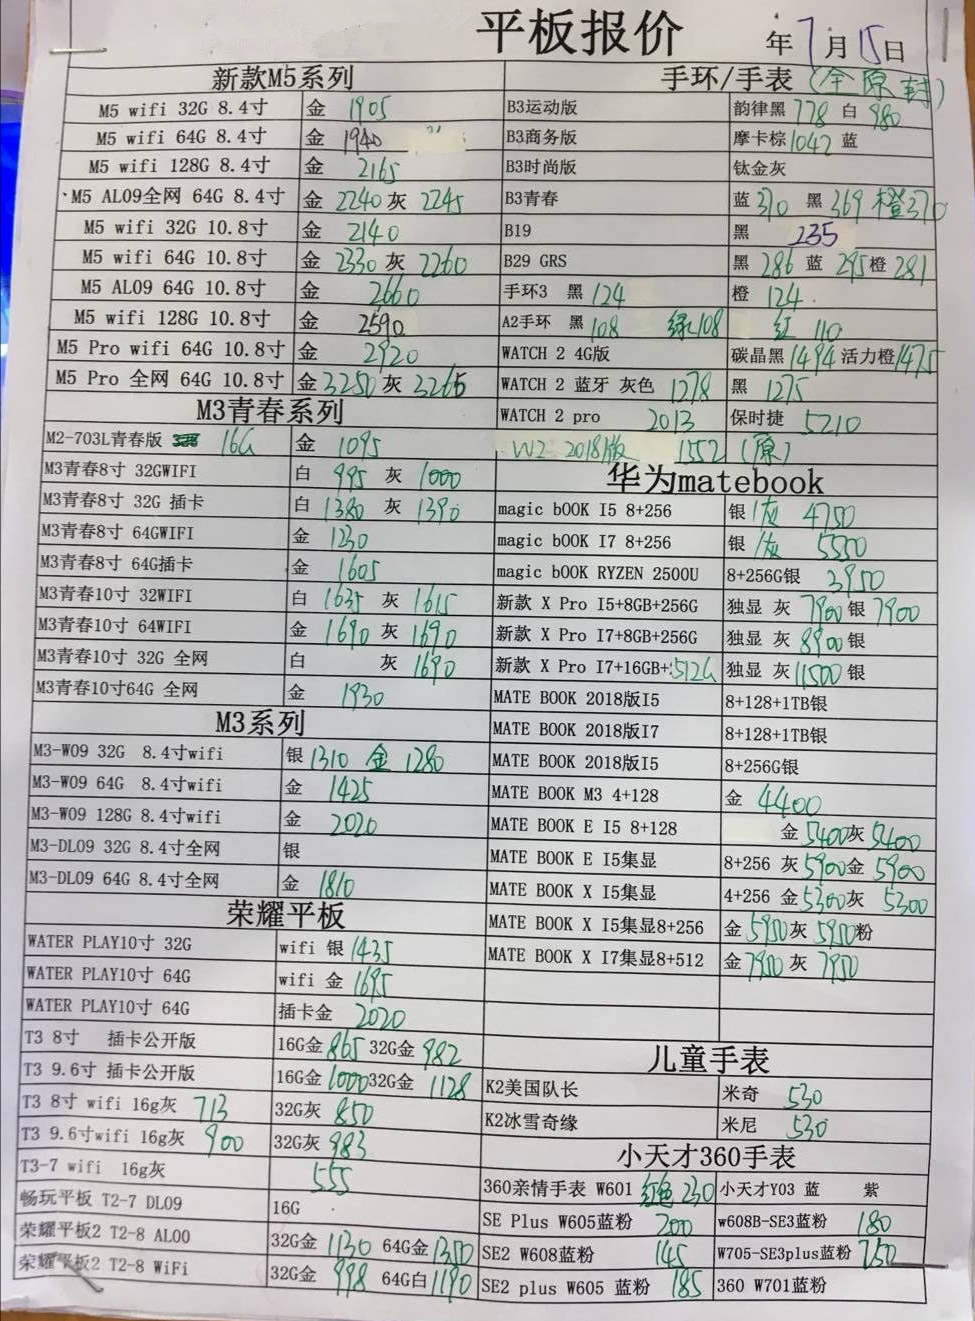 平板报价
年7月15日
新款M5系列
M5 wifi 32G 8.4寸 金 1905
M5 wifi 64G 8.4寸 金 1940
M5 wifi 128G 8.4寸 金 2165
M5 AL09全网 64G 8.4寸 金 2240 灰 2245
M5 wifi 32G 10.8寸 金 2140
M5 wifi 64G 10.8寸 金 2330 灰 2260
M5 AL09 64G 10.8寸 金 2660
M5 wifi 128G 10.8寸 金 2590
M5 Pro wifi 64G 10.8寸 金 2920
M5 Pro 全网 64G 10.8寸 金 3250 灰 3265
M3青春系列
M2-703L青春版 16G 金 1095
M3青春8寸 32GWIFI 白 995 灰 1000
M3青春8寸 32G 插卡 白 1380 灰 1390
M3青春8寸 64GWIFI 金 1230
M3青春8寸 64G插卡 金 1605
M3青春10寸 32WIFI 白 1635 灰 1615
M3青春10寸 64WIFI 金 1690 灰 1690
M3青春10寸 32G 全网 白 灰 1690
M3青春10寸64G 全网 金 1930
M3系列
M3-W09 32G 8.4寸wifi 银 1310 金 1280
M3-W09 64G 8.4寸wifi 金 1425
M3-W09 128G 8.4寸wifi 金 2020
M3-DL09 32G 8.4寸全网 银
M3-DL09 64G 8.4寸全网 金 1810
荣耀平板
WATER PLAY10寸 32G wifi 银 1435
WATER PLAY10寸 64G wifi 金 1695
WATER PLAY10寸 64G 插卡金 2020
T3 8寸 插卡公开版 16G金 865 32G金 982
T3 9.6寸 插卡公开版 16G金 1000 32G金 1128
T3 8寸 wifi 16g灰 713 32G灰 850
T3 9.6寸wifi 16g灰 900 32G灰 983
T3-7 wifi 16g灰 555
畅玩平板 T2-7 DL09 16G
荣耀平板2 T2-8 AL00 32G金 1130 64G金 1350
荣耀平板2 T2-8 WiFi 32G金 998 64G白 1190
手环/手表 (全原封)
B3运动版 韵律黑 778 白 980
B3商务版 摩卡棕 1042 蓝
B3时尚版 钛金灰
B3青春 蓝 310 黑 369 橙 370
B19 黑 235
B29 GRS 黑 286 蓝 295 橙 281
手环3 黑 124 橙 124
A2手环 黑 108 绿108 红 110
WATCH 2 4G版 碳晶黑 1494 活力橙 1475
WATCH 2 蓝牙 灰色 1278 黑 1275
WATCH 2 pro 2013 保时捷 5210
W2 2018版 1552 (原)
华为matebook
magic bOOK I5 8+256 银/灰 4750
magic bOOK I7 8+256 银/灰 5550
magic bOOK RYZEN 2500U 8+256G银 3950
新款 X Pro I5+8GB+256G 独显 灰 7900 银 7900
新款 X Pro I7+8GB+256G 独显 灰 8900 银
新款 X Pro I7+16GB+512G 独显 灰 11500 银
MATE BOOK 2018版I5 8+128+1TB银
MATE BOOK 2018版I7 8+128+1TB银
MATE BOOK 2018版I5 8+256G银
MATE BOOK M3 4+128 金 4400
MATE BOOK E I5 8+128 金 5400 灰 5400
MATE BOOK E I5集显 8+256 灰 5900 金 5900
MATE BOOK X I5集显 4+256 金 5300 灰 5300
MATE BOOK X I5集显8+256 金 5950 灰 5950 粉
MATE BOOK X I7集显8+512 金 7950 灰 7950
儿童手表
K2美国队长 米奇 530
K2冰雪奇缘 米尼 530
小天才360手表
360亲情手表 W601 红色 230 小天才Y03 蓝 紫
SE Plus W605蓝粉 200 w608B-SE3蓝粉 180
SE2 W608蓝粉 145 W705-SE3plus蓝粉 250
SE2 plus W605 蓝粉 185 360 W701蓝粉